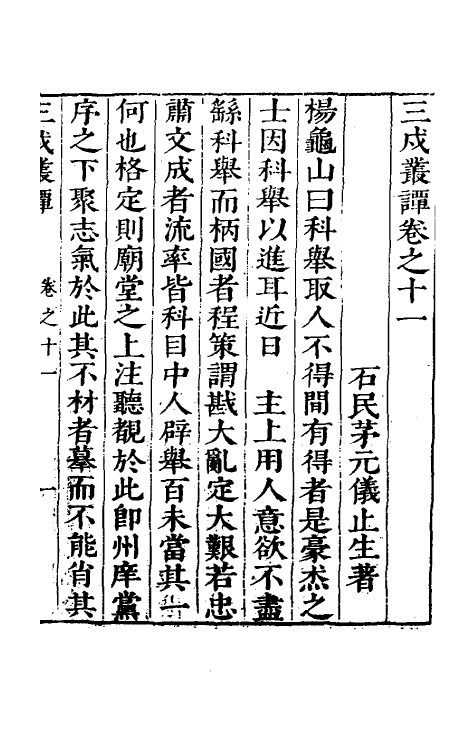 三戍叢譚卷之十一
石民茅元儀止生著
楊龜山曰科舉取人不得間有得者是豪杰之
士因科舉以進耳近日　主上用人意欲不盡
繇科舉而柄國者程策謂戡大亂定大艱若忠
肅文成者流率皆科目中人辟舉百未當其一
何也格定則廟堂之上注聽覩於此卽州庠黨
序之下聚志氣於此其不材者摹而不能肖其
三戍叢譚　卷之十一　一